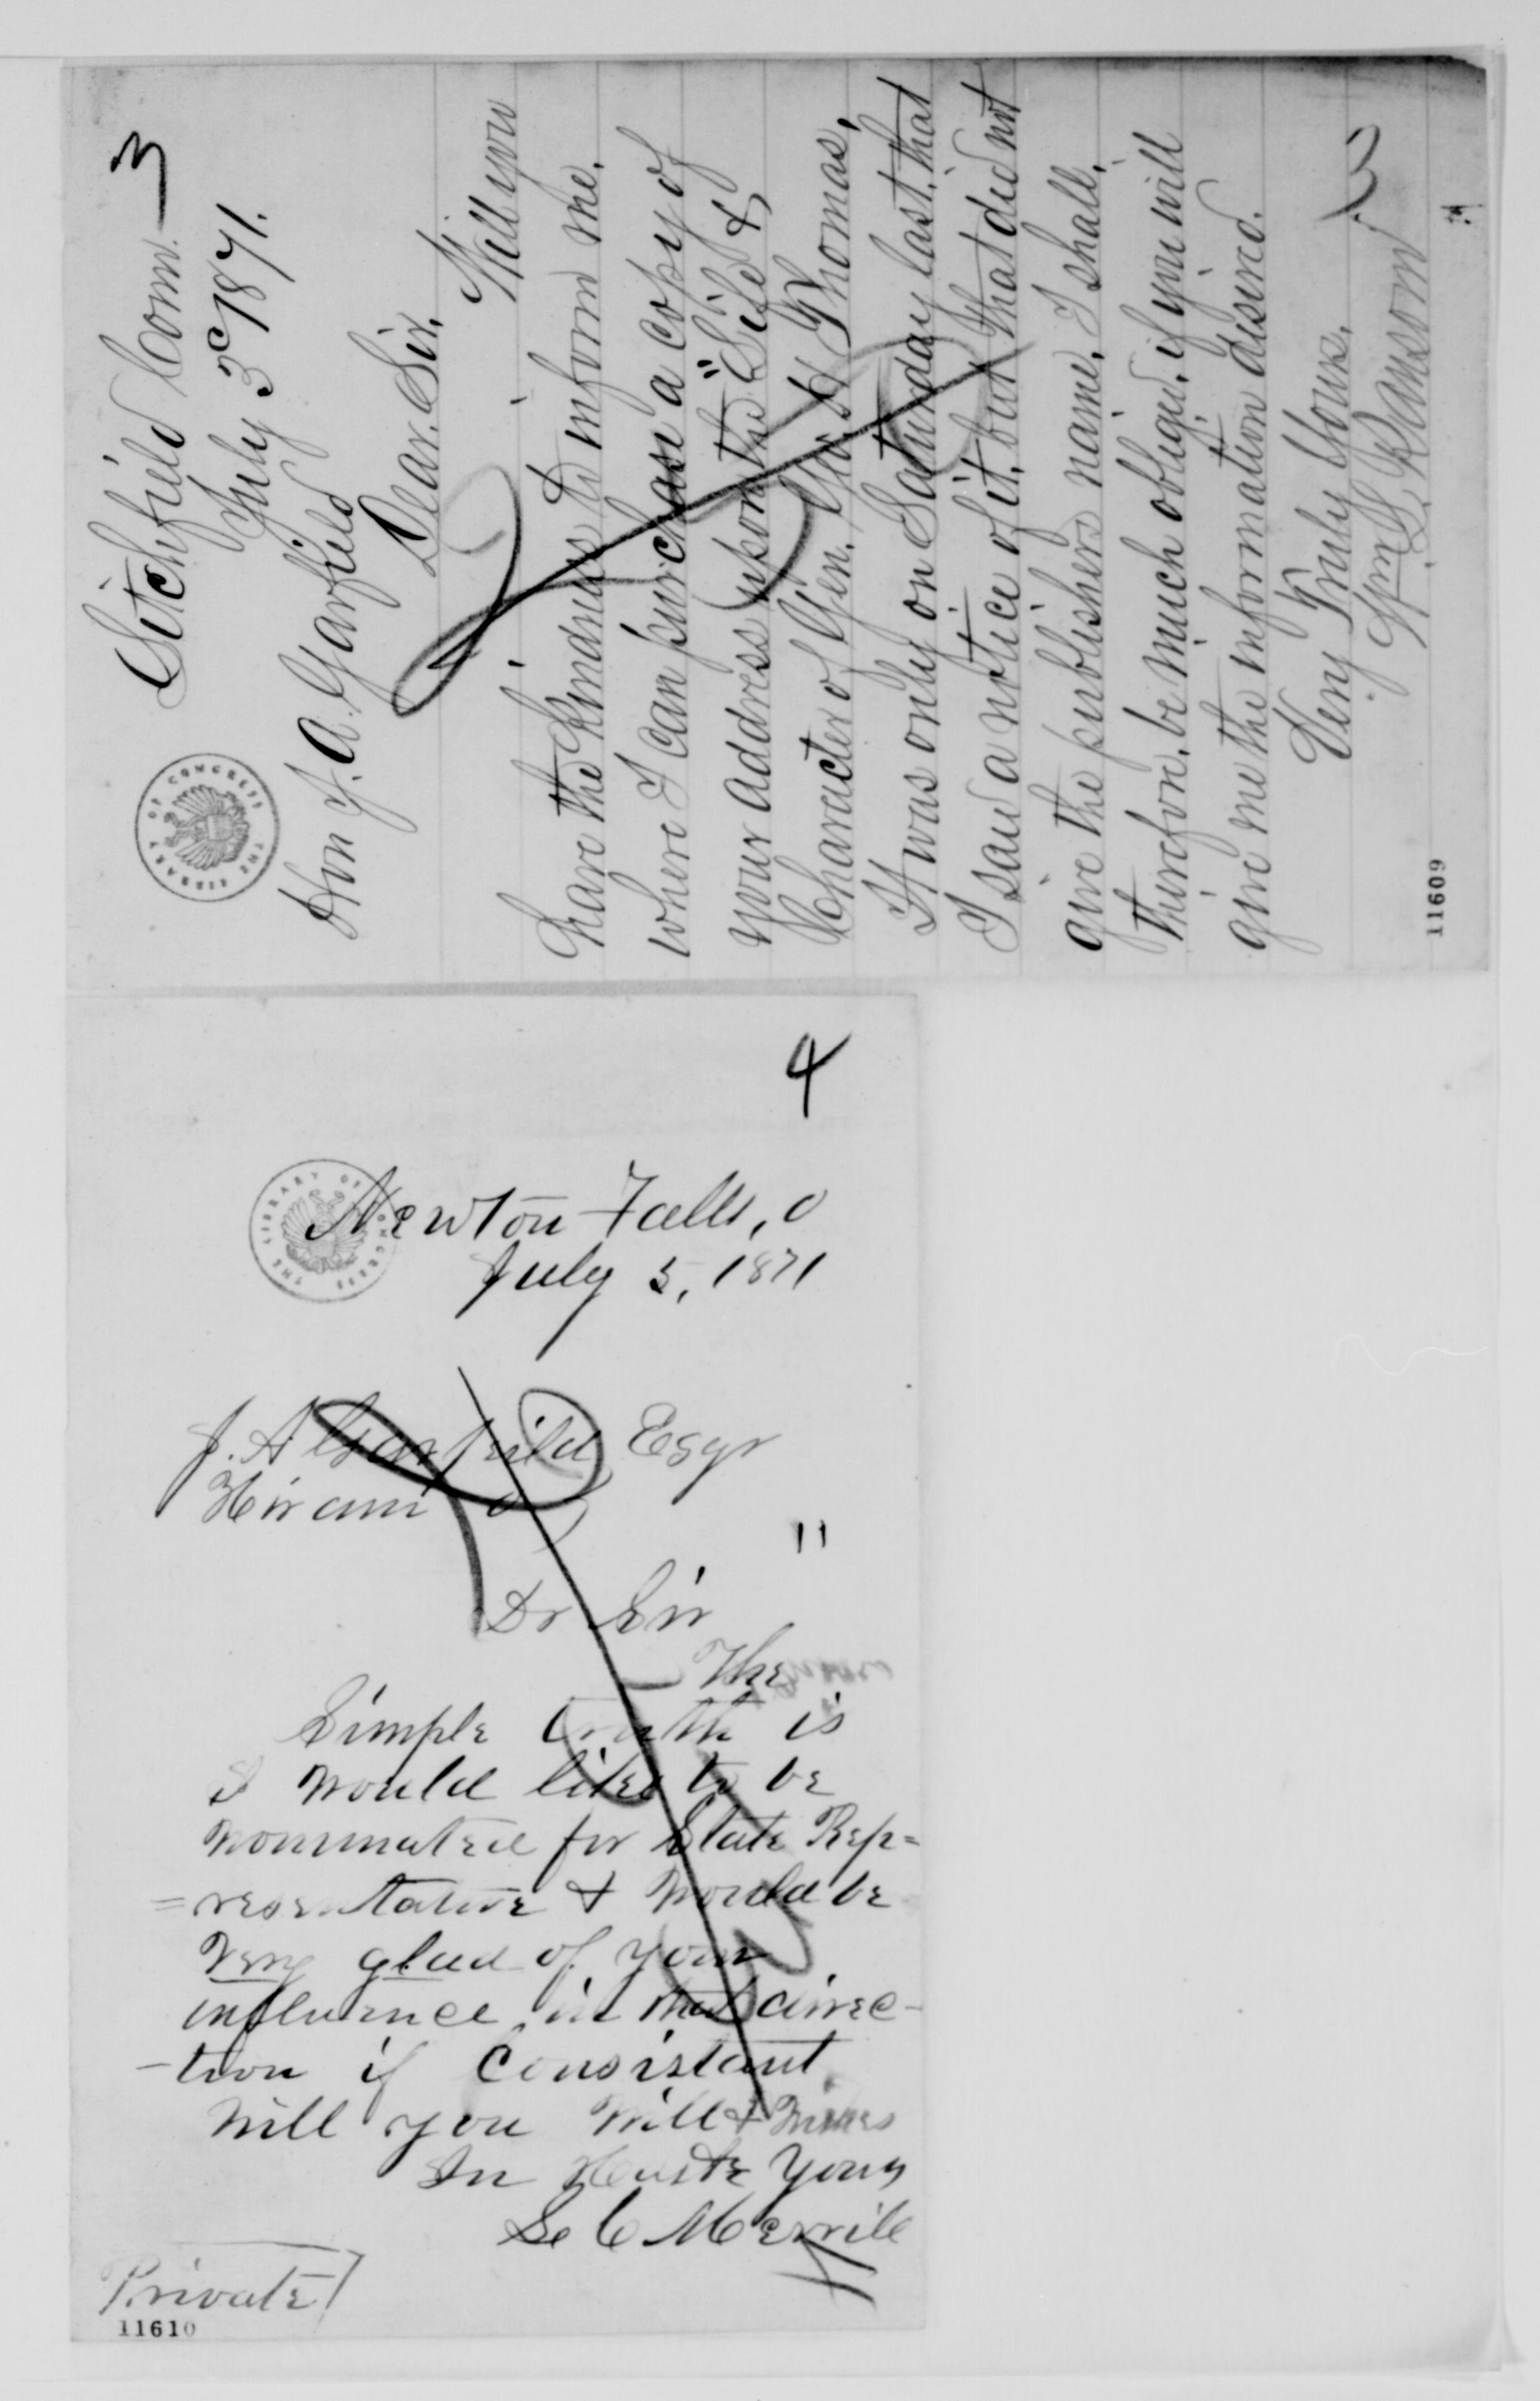 3
Litchfield Conn.
July 3d 1871.
Hon J. A. Garfield
Dear. Sir.
Will you
have the kindness to inform me.
where I can purchase a copy of
your address upon the "Life &
Character of Gen. Geo. H Thomas.
It was only on Saturday last. that
I saw a notice of it. but that did not
give the publishers name. I shall.
therefore. be much obliged. if you will
give me the information desired.
Very Truly Yours.
Wm L. Ransom
THE LIBRARY OF CONGRESS
11609
4
THE LIBRARY OF CONGRESS
Newton Falls, O
July 5, 1871
J. A Garfield Esqr
Hiram O
"
Dr Sir
The
Simple truth is
I would like to be
nominated for State Rep=
=resentative & would be
very glad of your
influence in that direc-
-tion if Consistant
will you will & wishes
In Haste Yours
C Merrill
Private
11610